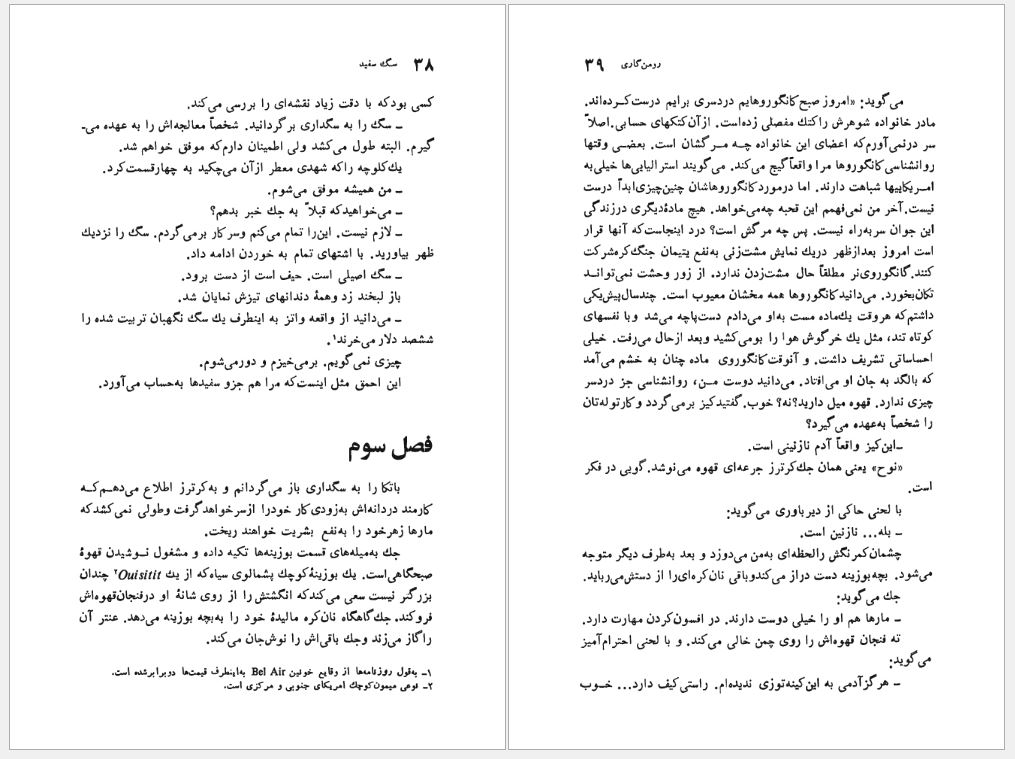 ۳۸ سگ سفید
کسی بود که با دقت زیاد نقشه‌ای را بررسی می‌کند.
ـ سگ را به سگداری برگردانید. شخصاً معالجه‌اش را به عهده می‌ـ
گیرم. البته طول می‌کشد ولی اطمینان دارم که موفق خواهم شد.
یك کلوچه را که شهدی معطر از آن می‌چکید به چهار قسمت کرد.
ـ من همیشه موفق می‌شوم.
ـ می‌خواهید که قبلاً به جك خبر بدهم؟
ـ لازم نیست. این را تمام می‌کنم و سر کار برمی‌گردم. سگ را نزدیك
ظهر بیاورید. با اشتهای تمام به خوردن ادامه داد.
ـ سگ اصیلی است. حیف است از دست برود.
باز لبخند زد وهمهٔ دندانهای تیزش نمایان شد.
ـ می‌دانید از واقعه واتز به اینطرف یك سگ نگهبان تربیت شده را
ششصد دلار می‌خرند۱.
چیزی نمی‌گویم. برمی‌خیزم و دور می‌شوم.
این احمق مثل اینست که مرا هم جزو سفیدها به‌حساب می‌آورد.
فصل سوم
باتکا را به سگداری باز می‌گردانم و به کرترز اطلاع می‌دهـم کـه
کارمند دردانه‌اش به‌زودی کار خود را از سر خواهد گرفت و طولی نمی‌کشد که
مارها زهر خود را به‌نفع بشریت خواهند ریخت.
جك به‌میله‌های قسمت بوزینه‌ها تکیه داده و مشغول نـوشیدن قهوهٔ
صبحگاهی‌است. یك بوزینهٔ کوچك پشمالوی سیاه که از یك Ouisitit۲ چندان
بزرگتر نیست سعی می‌کند که انگشتش را از روی شانهٔ او در فنجان قهوه‌اش
فرو کند. جك گاهگاه نان کره مالیدهٔ خود را به‌بچه بوزینه می‌دهد. عنتر آن
را گاز می‌زند و جك باقی‌اش را نوش‌جان می‌کند.
۱ـ به‌قول روزنامه‌ها از وقایع خونین Bel Air به‌اینطرف قیمت‌ها دوبرابر شده است.
۲ـ نوعی میمون کوچك امریکای جنوبی و مرکزی است.
رومن گاری ۳۹
می‌گوید: «امروز صبح کانگوروهایم دردسری برایم درست کـرده‌اند.
مادر خانواده شوهرش را کتك مفصلی زده‌است. از آن کتکهای حسابی. اصلاً
سر در نمی‌آورم که اعضای این خانواده چـه مـرگشان است. بعضـی وقتها
روانشناسی کانگوروها مرا واقعاً گیج می‌کند. می‌گویند استرالیایی‌ها خیلی به
امـریکاییها شباهت دارند. اما در مورد کانگوروهاشان چنین چیزی ابداً درست
نیست. آخر من نمی‌فهمم این قحبه چه می‌خواهد. هیچ مادهٔ دیگری در زندگی
این جوان سر به‌راه نیست. پس چه مرگش است؟ درد اینجاست که آنها قرار
است امروز بعد از ظهر در یك نمایش مشت‌زنی به‌نفع یتیمان جنگ کره شرکت
کنند. کانگوروی نر مطلقاً حال مشت‌زدن ندارد. از زور وحشت نمی‌توانـد
تکان بخورد. می‌دانید کانگوروها همه مخشان معیوب است. چند سال پیش یکی
داشتم که هر وقت یك ماده مست به‌او می‌دادم دست‌پاچه می‌شد و با نفسهای
کوتاه تند، مثل یك خرگوش هوا را بو می‌کشید و بعد از حال می‌رفت. خیلی
احساساتی تشریف داشت. و آنوقت کانگوروی ماده چنان به خشم می‌آمد
که بالگد به جان او می‌افتاد. می‌دانید دوست مـن، روانشناسی جز دردسر
چیزی ندارد. قهوه میل دارید؟ نه؟ خوب. گفتید کیز برمی‌گردد و کار توله‌تان
را شخصاً به‌عهده می‌گیرد؟
ـ این کیز واقعاً آدم نازنینی است.
«نوح» یعنی همان جك کرترز جرعه‌ای قهوه می‌نوشد. گویی در فکر
است.
با لحنی حاکی از دیرباوری می‌گوید:
ـ بله... نازنین است.
چشمان کمرنگش را لحظه‌ای به‌من می‌دوزد و بعد به‌طرف دیگر متوجه
می‌شود. بچه بوزینه دست دراز می‌کند و باقی نان کره‌ای را از دستش می‌رباید.
جك می‌گوید:
ـ مارها هم او را خیلی دوست دارند. در افسون کردن مهارت دارد.
ته فنجان قهوه‌اش را روی چمن خالی می‌کند. و با لحنی احترام‌آمیز
می‌گوید:
ـ هرگز آدمی به این کینه‌توزی ندیده‌ام. راستی کیف دارد... خـوب